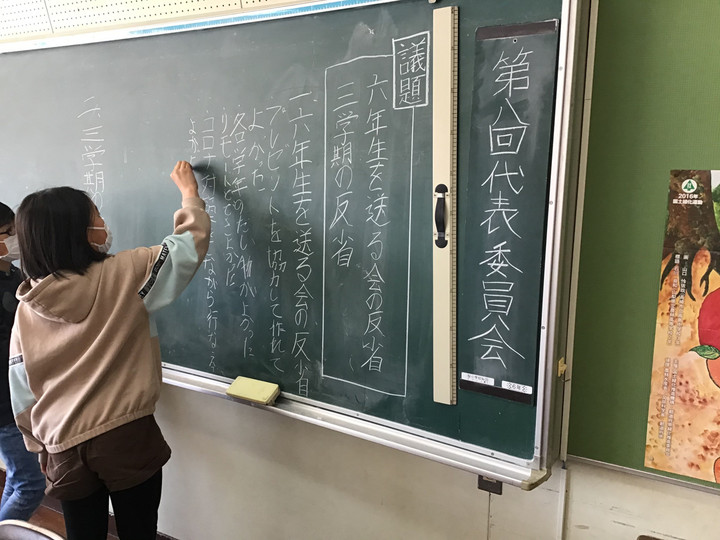 第八回代表委員会
議題
六年生を送る会の反省
三学期の反省
一、六年生を送る会の反省
プレゼントを協力して作れて
よかった
各学年のだし物がよかった
リモートでもよかった
ながら行なえ
よか
二、三学期の
2015年
国土緑化運動